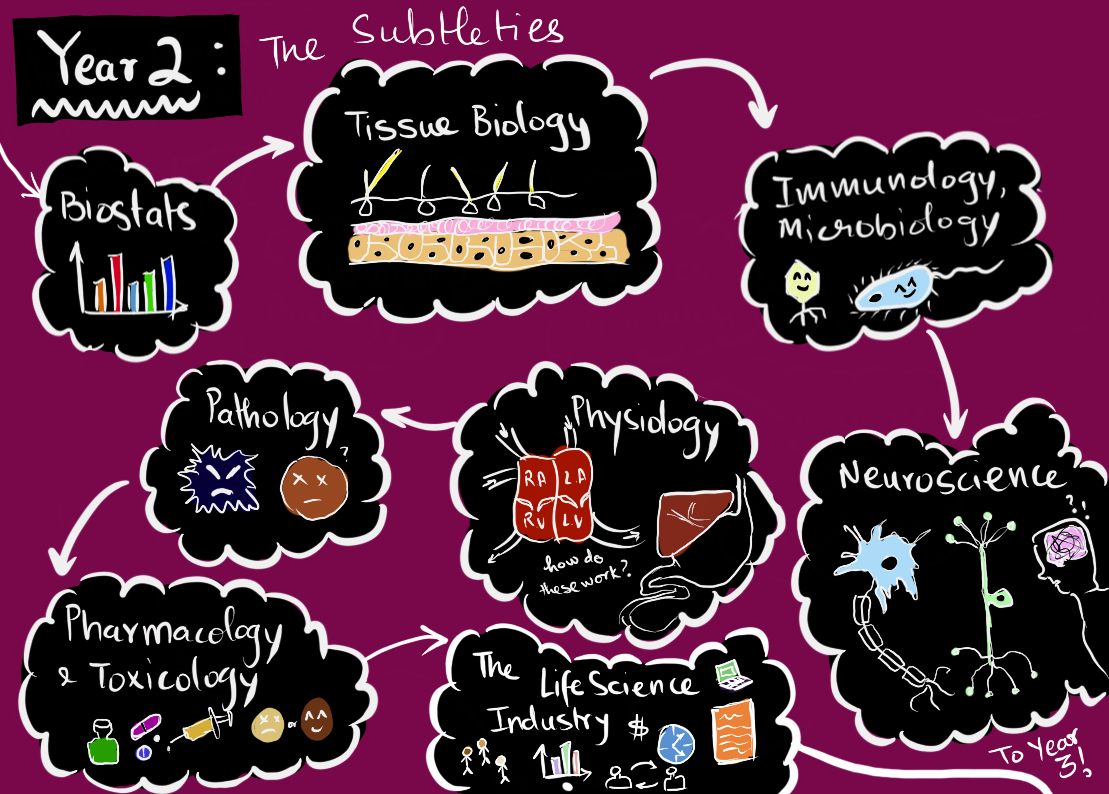 Year 2:
The Subtleties
Biostats
Tissue Biology
Immunology,
Microbiology
Neuroscience
? ?
Physiology
RA LA
RV LV
how do
these work?
Pathology
?
Pharmacology
& Toxicology
or
The
Life Science
Industry $
To Year
3!